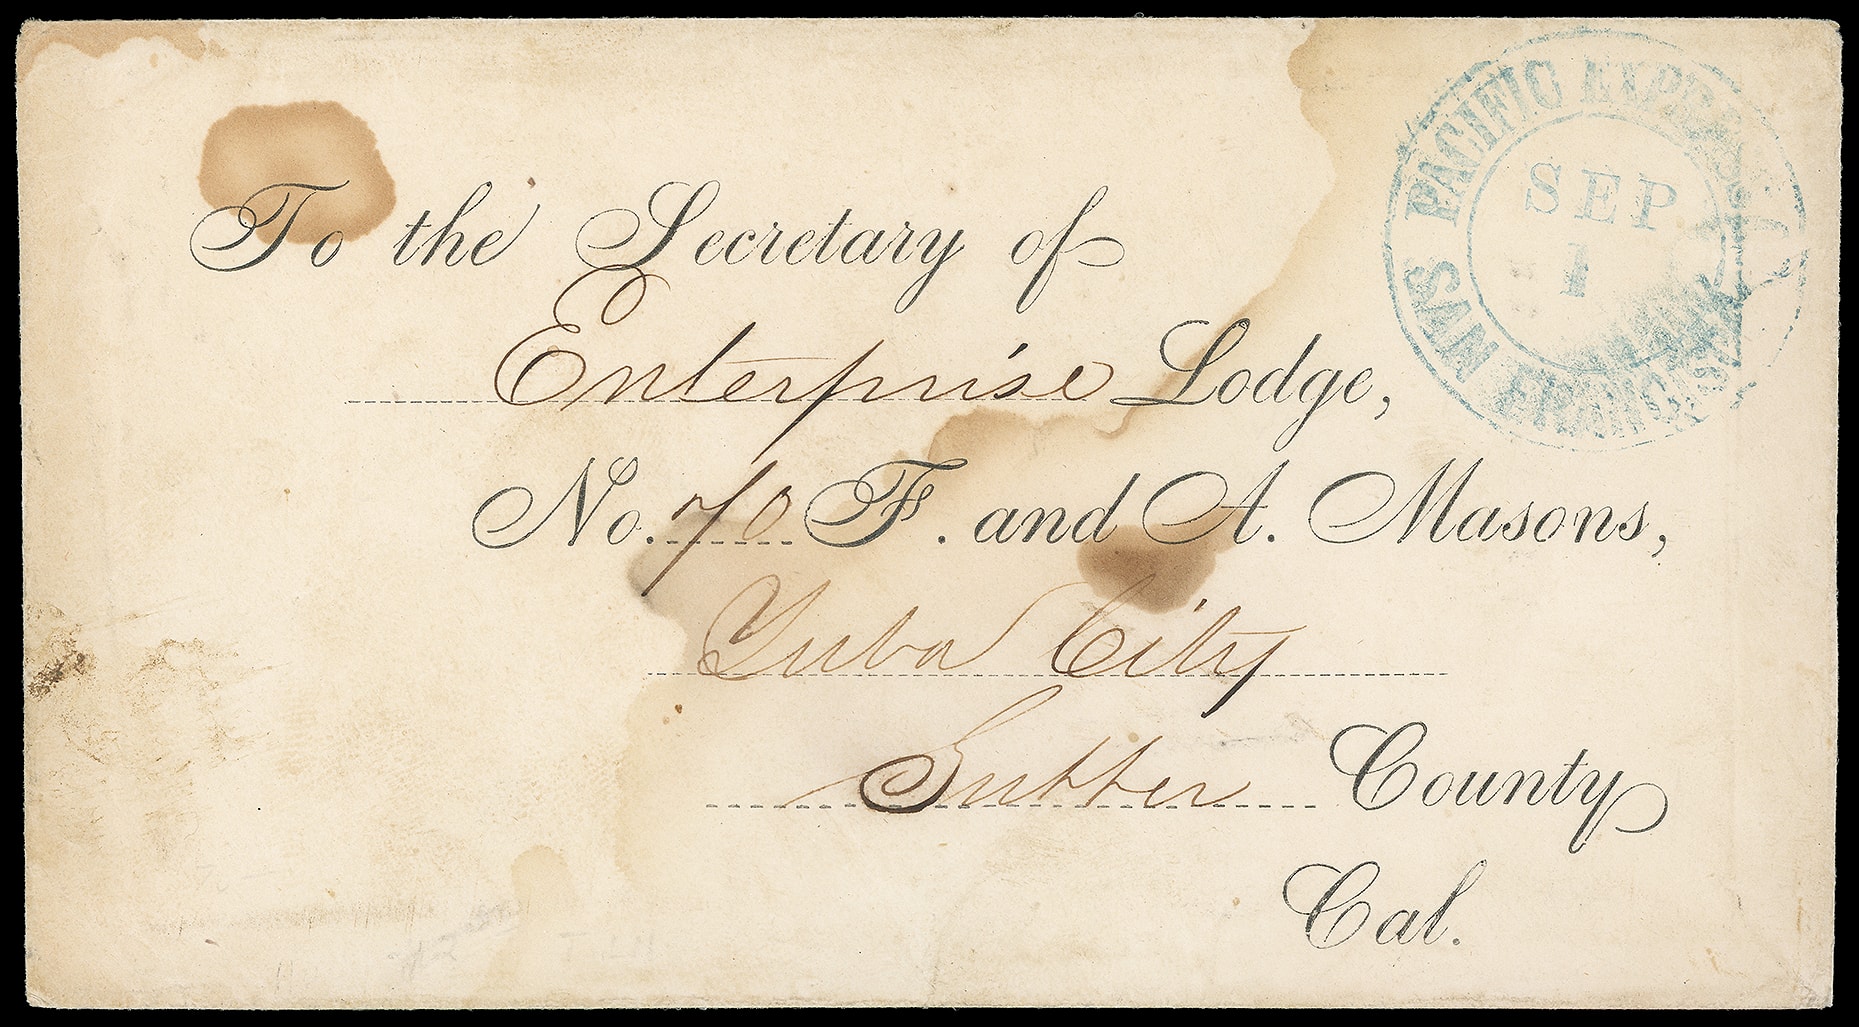 To the Secretary of
Enterprise Lodge,
No. 70 F. and A. Masons,
Yuba City
Sutter County
Cal.
PACIFIC EXPRESS
SEP
1
SAN FRANCISCO